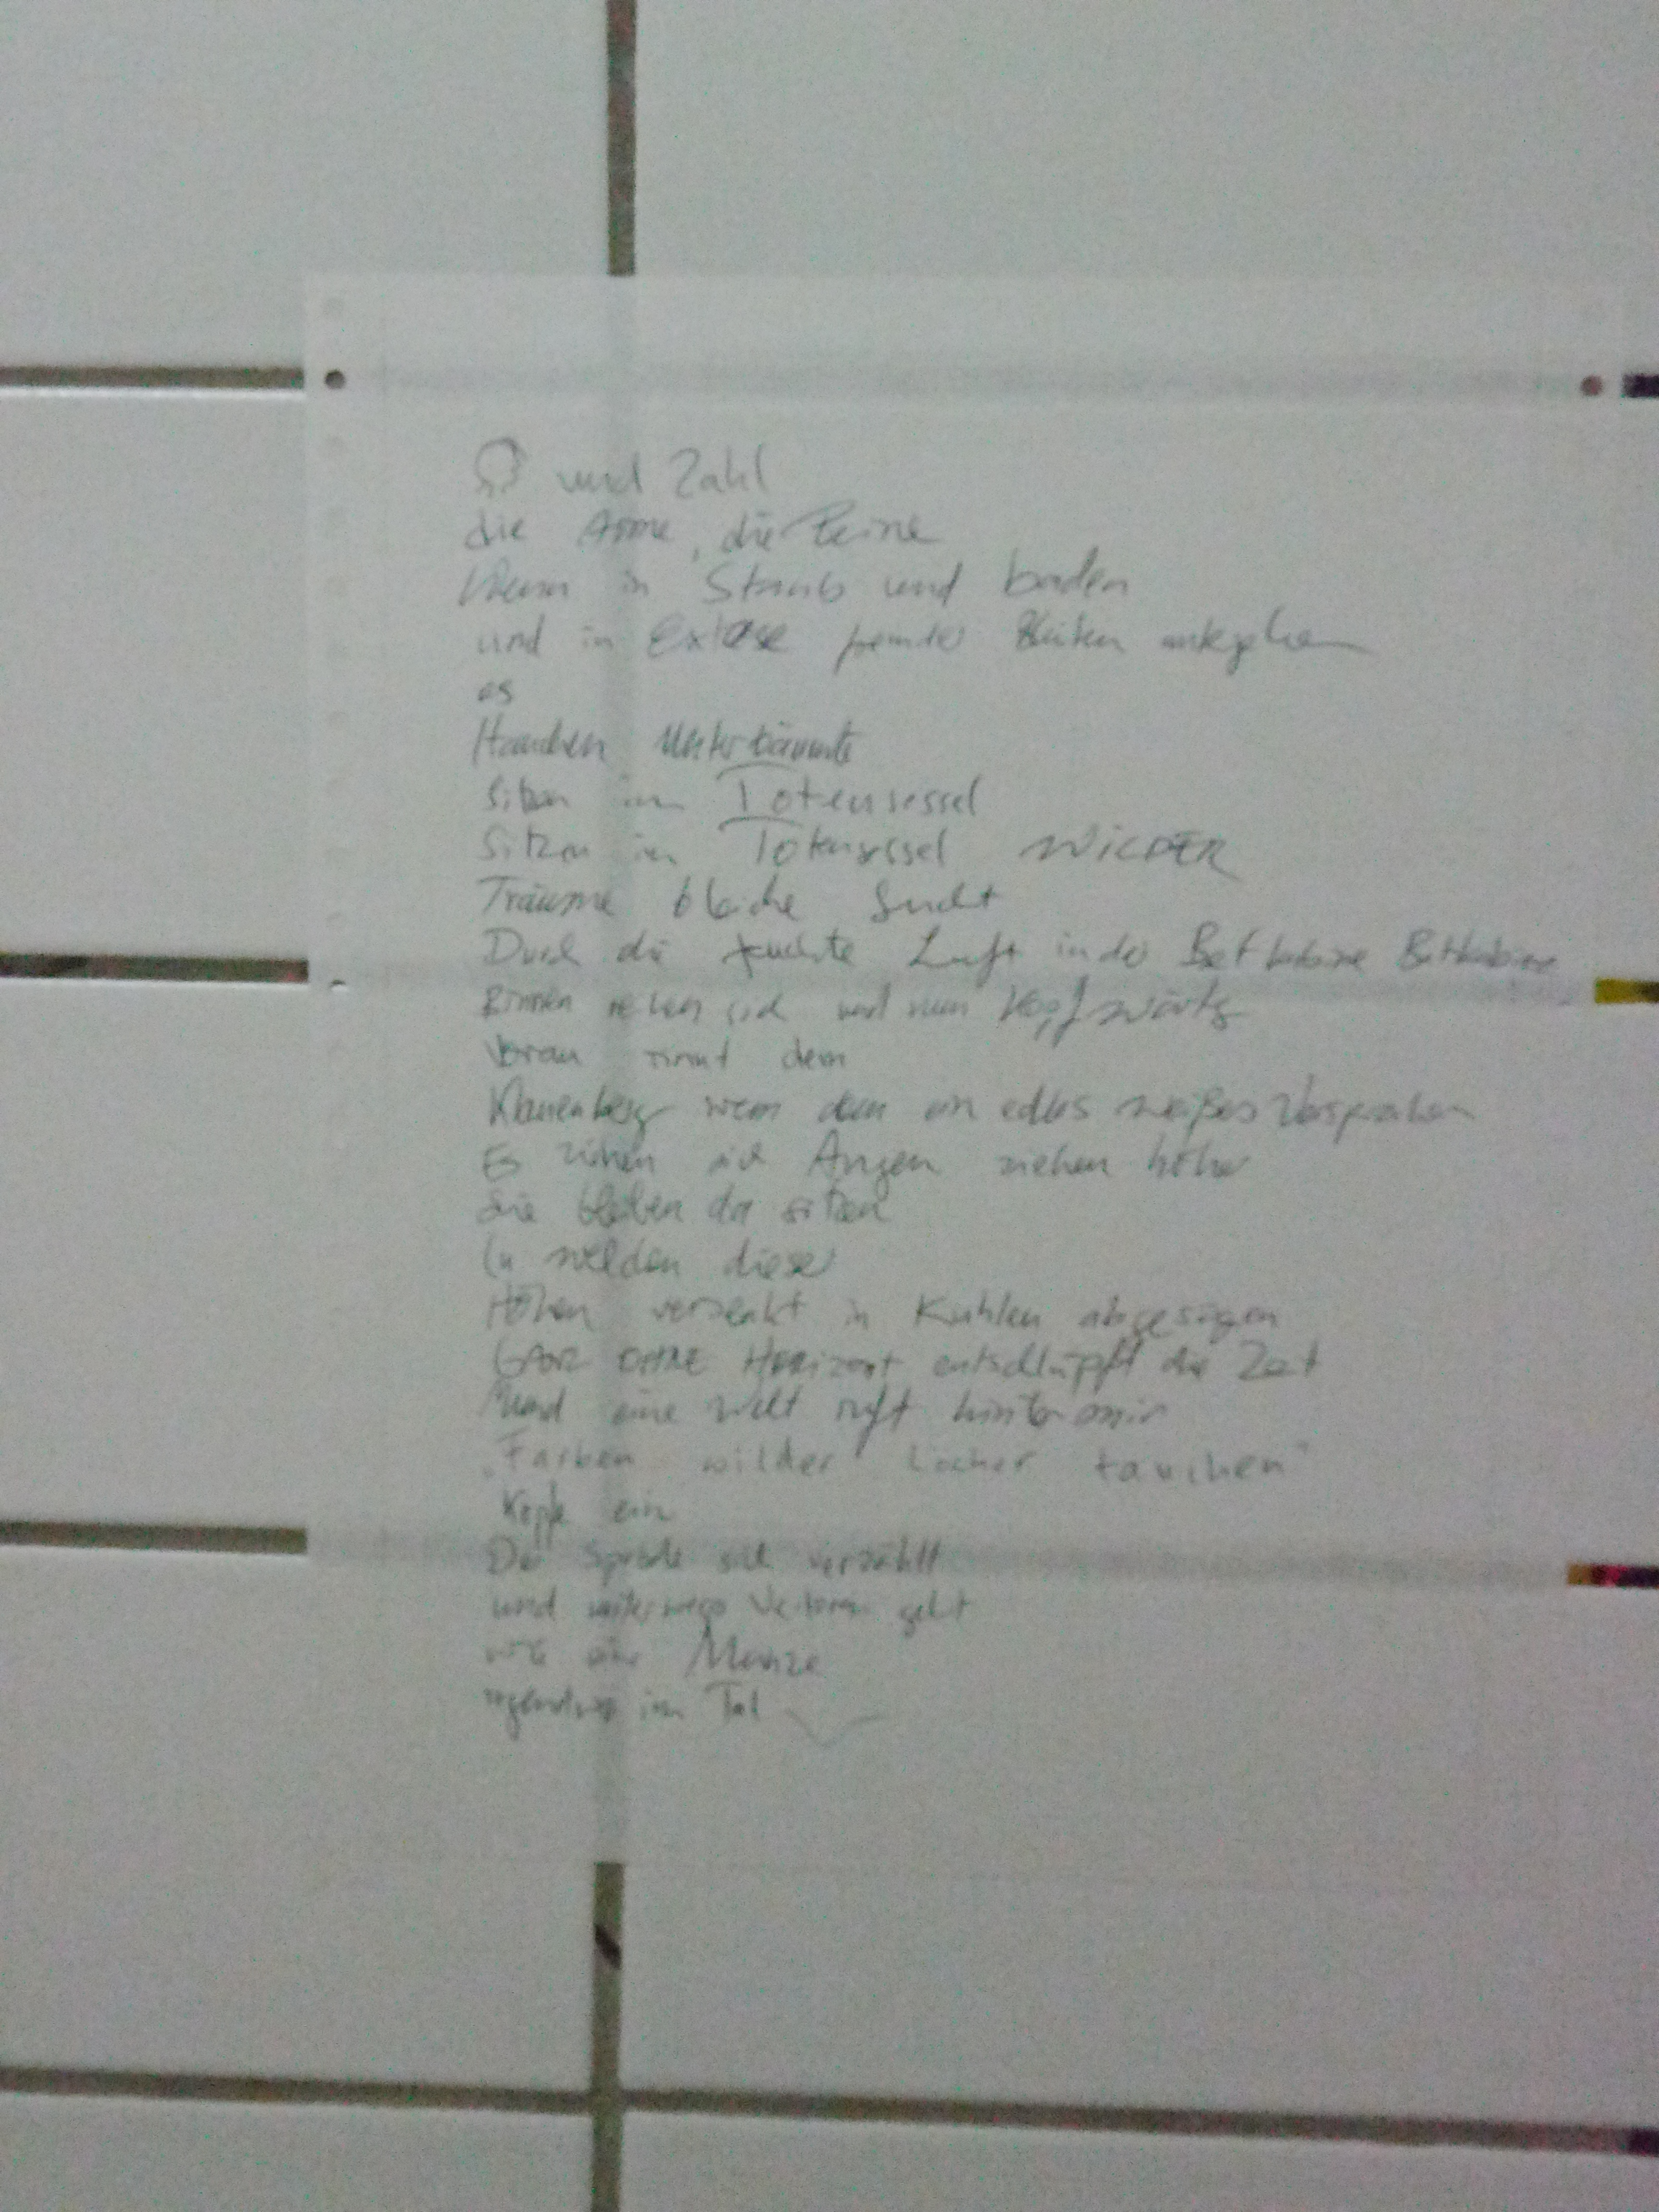 und Zahl
die Arme, die Beine
in Staub und baden
und in Extase fremder Blüten
es
Hauchen
Sitzen im Totensessel
Sitzen im Totensessel WIEDER
Träume bleiche Sucht
Durch die feuchte Luft in der
sich und nun Kopfwärts
Voran rinnt dem
wenn dem ein edles weißes Versprechen
Es ziehen sich Augen ziehen höher
Sie bleiben da sitzen
In welchen dieser
Höhen versenkt in Kuhlen
Ganz OHNE Horizont entschlüpft die Zeit
Und eine Welt ruft hinter mir
"Farben wilder Löcher tauchen"
Köpfe ein
Der sich verzählt
und unterwegs Verloren geht
wie eine Münze
irgendwo im Tal